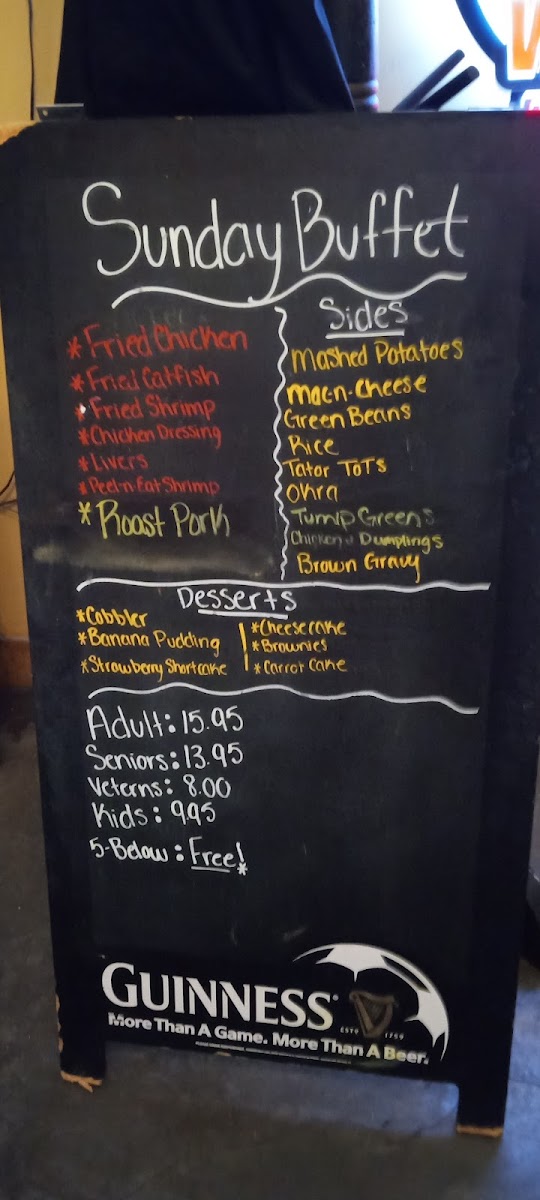 Sunday Buffet
*Fried Chicken
*Fried Catfish
*Fried Shrimp
*Chicken Dressing
*Livers
*Peel-n-Eat Shrimp
*Roast Pork
Sides
Mashed Potatoes
Mac-n-Cheese
Green Beans
Rice
Tator ToTs
Okra
Turnip Greens
Chicken & Dumplings
Brown Gravy
Desserts
*Cobbler
*Banana Pudding
*Strawberry Shortcake
*Cheesecake
*Brownies
*Carrot Cake
Adult: 15.95
Seniors: 13.95
Veterns: 8.00
Kids: 9.95
5-Below: Free!
GUINNESS®
ESTD 1759
More Than A Game. More Than A Beer.